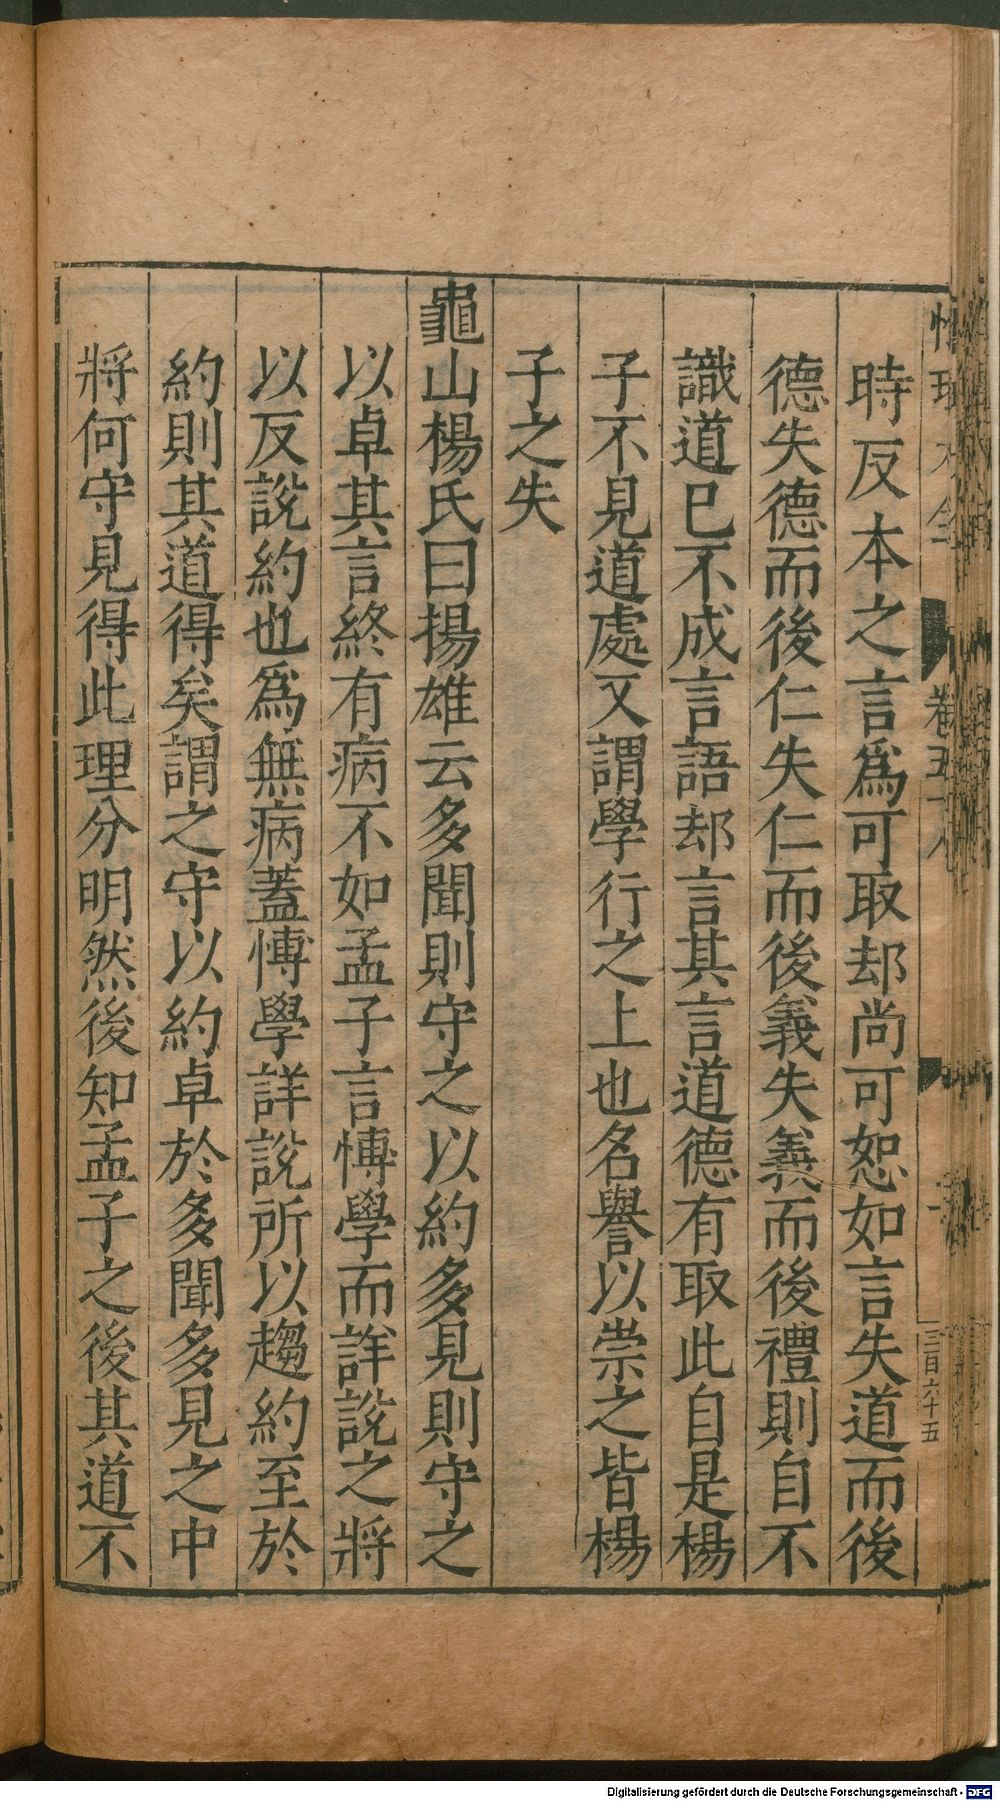 時反本之言爲可取却尚可恕如言失道而後
德失德而後仁失仁而後義失義而後禮則自不
識道已不成言語却言其言道德有取此自是楊
子不見道處又謂學行之上也名譽以崇之皆楊
子之失
龜山楊氏曰揚雄云多聞則守之以約多見則守之
以卓其言終有病不如孟子言愽學而詳說之將
以反說約也爲無病蓋愽學詳說所以趨約至於
約則其道得矣謂之守以約卓於多聞多見之中
將何守見得此理分明然後知孟子之後其道不
三百六十五
Digitalisierung gefördert durch die Deutsche Forschungsgemeinschaft - DFG